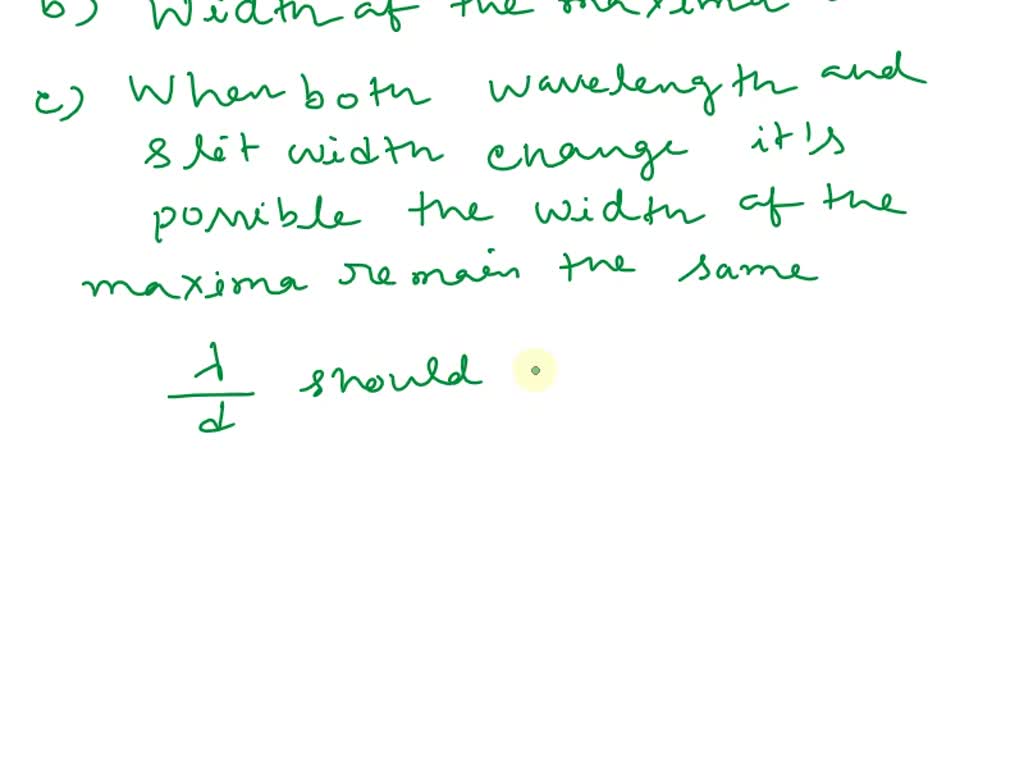 b) Width of the maxima
c) When both wavelength and
slit width change it's
possible the width of the
maxima remain the same
λ should
d